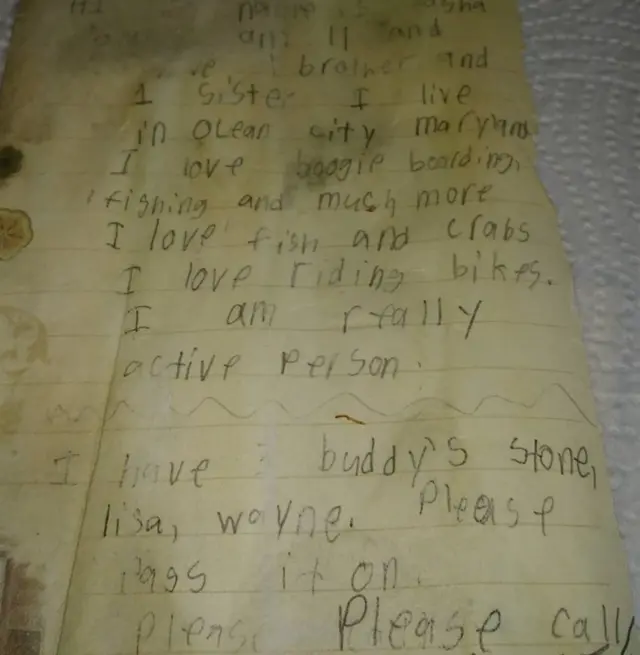 HI
am 11 and
brother and
1 sister I live
in Ocean city maryland
I love boogie boarding,
fishing and much more
I love fish and crabs
I love riding bikes.
I am really
active person.
I have buddy's stone,
lisa, wayne. Please
Pass it on.
Please Please call